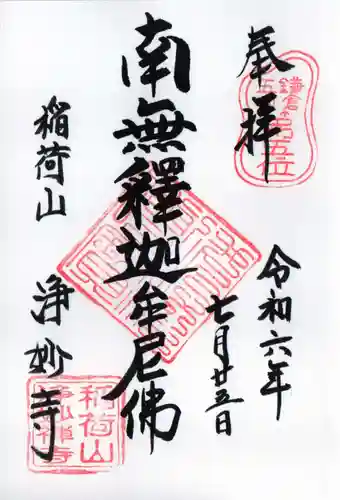 奉拝
鎌倉
五山
第五位
令和六年
七月廿五日
南無釋迦牟尼佛
稲荷山
浄妙寺
稲荷山
浄妙禅寺